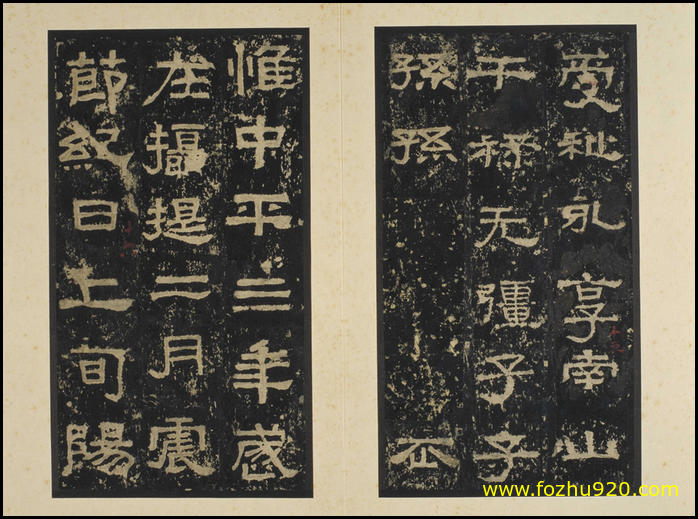 受祉永享南山
干祿无疆子子
孫孫
惟中平三年歲
在攝提二月震
節紀日上旬陽
www.fozhu920.com